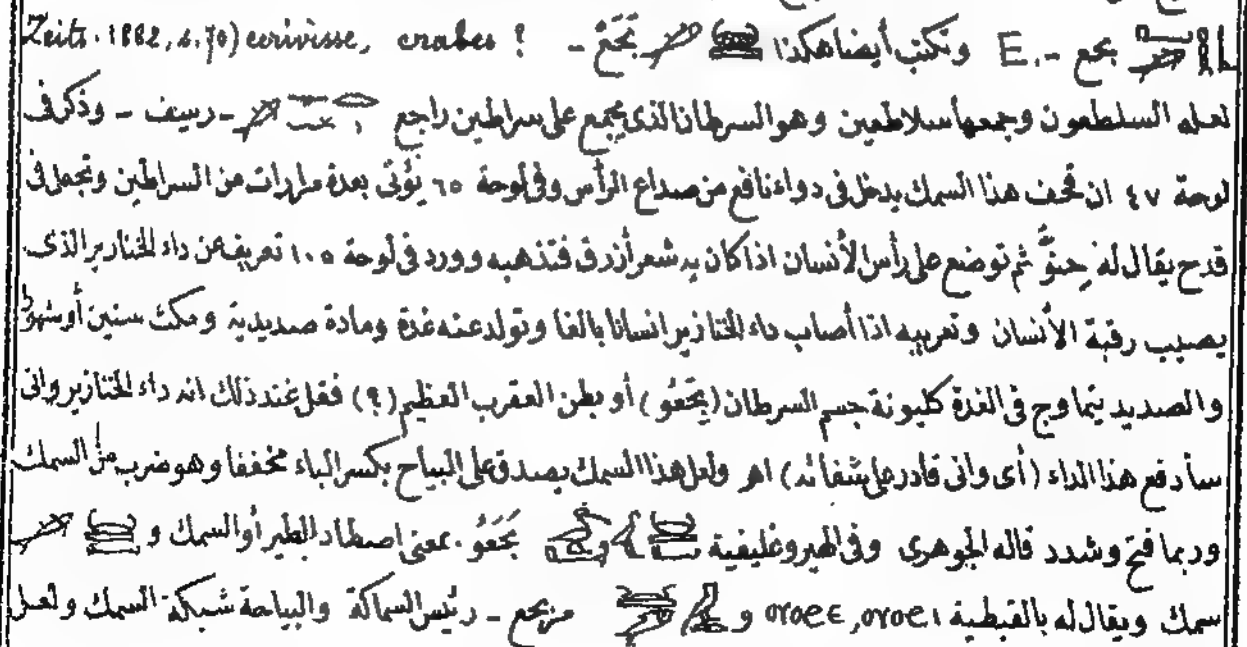 بحع - .E وتكتب أيضا هكذا تجع - ? Zeits. 1882, s. 70) ecrivisse, crabes
لعله السلطعون وجمعها سلاطعين وهو السرطان الذى يجمع على سراطين راجع - رسيف - وذكر فى
لوحة ٤٧ ان قحف هذا السمك يدخل فى دواء نافع من صداع الرأس وفى لوحة ٦٥ يؤتى بعدة مرارات من السراطين وتجعل فى
قدح يقال له حنو ثم توضع على رأس الأنسان اذا كان به شعر أزرق فتذهبه وورد فى لوحة ١٠٥ تعريف عن داء الخنازير الذى
يصيب رقبة الأنسان وتعريبه اذا أصاب داء الخنازير انسانا بالغا وتولد عنه غدة ومادة صديدية ومكث سنين أو شهورا
والصديد يتماوج فى الغدة كليونة جسم السرطان (يحعو) أو بطن العقرب العظيم (؟) فقل عند ذلك انه داء الخنازير وانى
سأدفع هذا الداء (أى وانى قادر على شفائه) اهر ولعل هذا السمك يصدق على البياح بكسر الباء مخففا وهو ضرب من السمك
وربما فتح وشدد قاله الجوهرى وفى الهيروغليفية و بحعو. بمعنى اصطاد الطير أو السمك و
سمك ويقال له بالقبطية ⲟⲩⲟϩⲉ, ⲟⲩⲟϩⲓ و مزبحع - رئيس السماكة والبياحة شبكة السمك ولعل